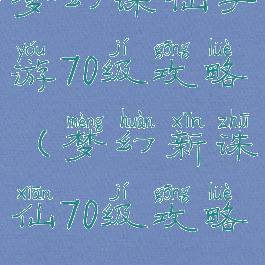 梦幻诛仙手
yóu jí gōng lüè
游70级攻略
mèng huàn xīn zhū
(梦幻新诛
xiān jí gōng lüè
仙70级攻略